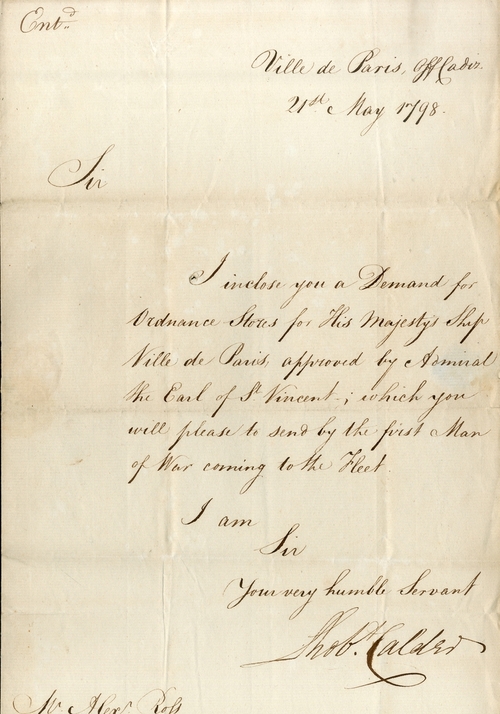 Entd
Ville de Paris, off Cadiz
21st May 1798.
Sir
I inclose you a Demand for
Ordnance Stores for His Majesty's Ship
Ville de Paris, approved by Admiral
the Earl of St Vincent; which you
will please to send by the first Man
of War coming to the Fleet.
I am
Sir
Your very humble Servant
Calder
Mr Alexr Ross